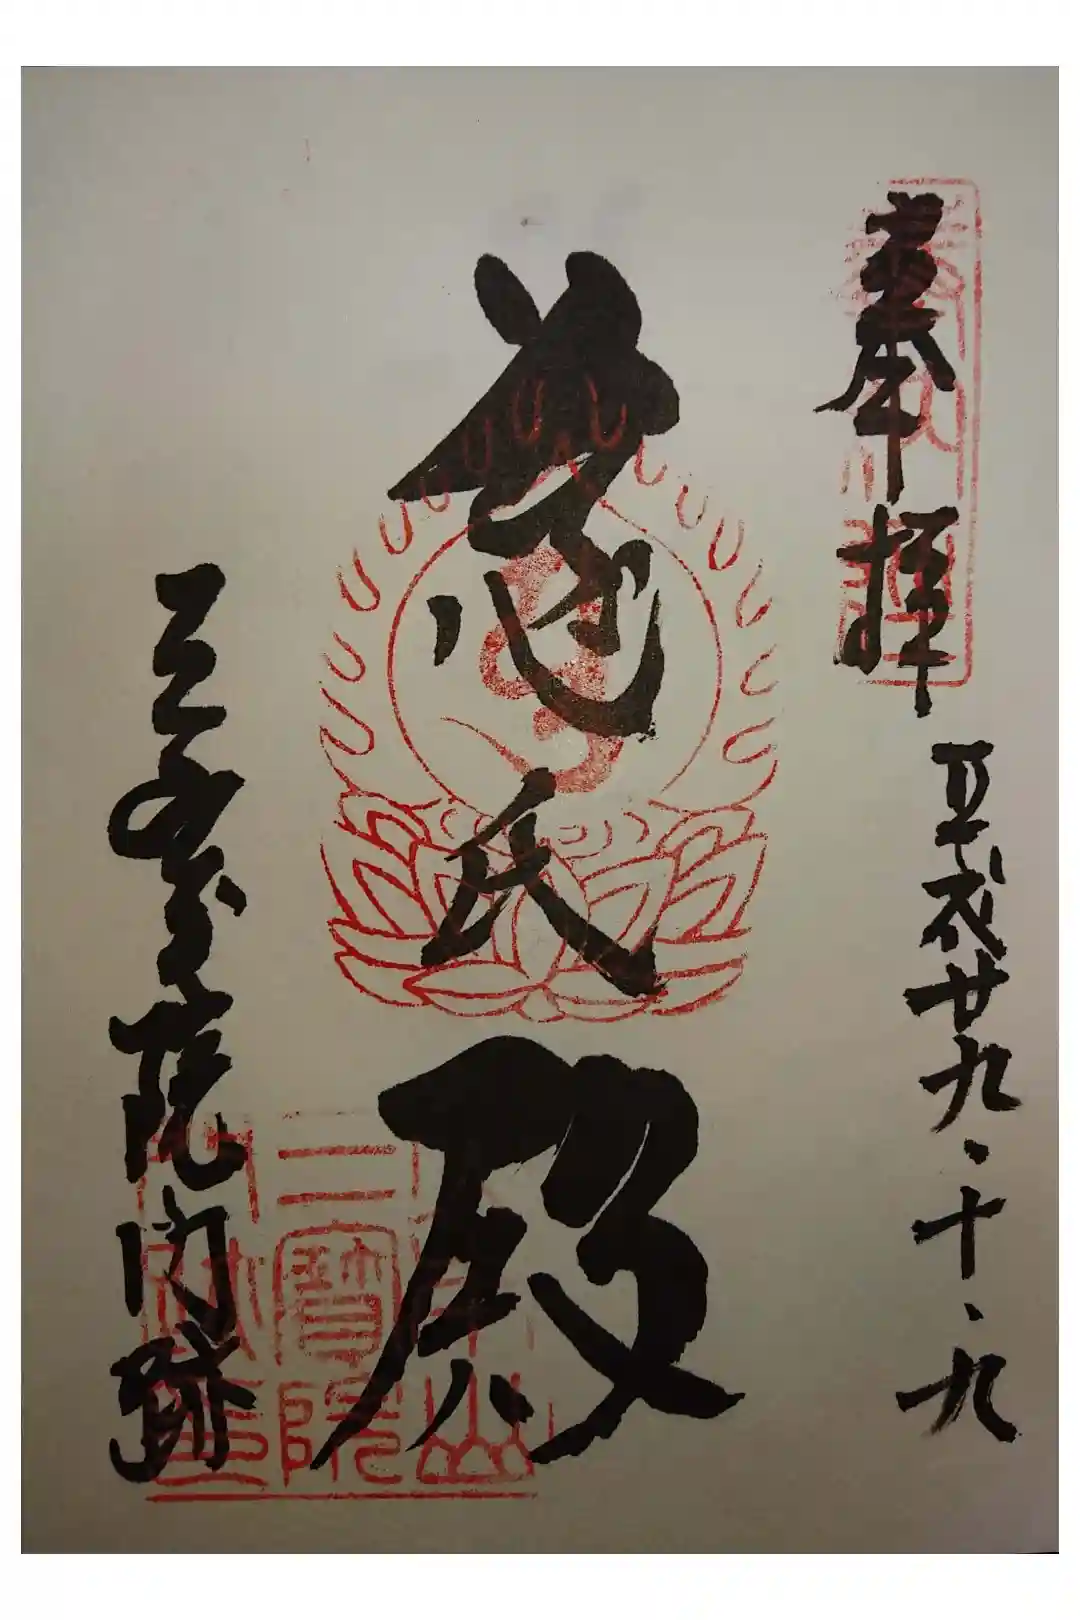 奉拝
平成廿九、十、九
慈氏殿
三宝院門跡
三寶院